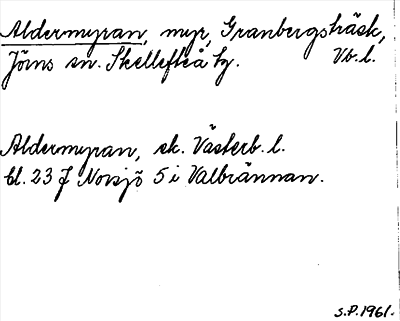 Aldermyran, myr, Granbergsträsk,
Jörns sn. Skellefteå tg. Vb. l.
Aldermyran, sk. Västerb. l.
bl. 23 J Norsjö 5 i Valbrännan.
S.P. 1961.